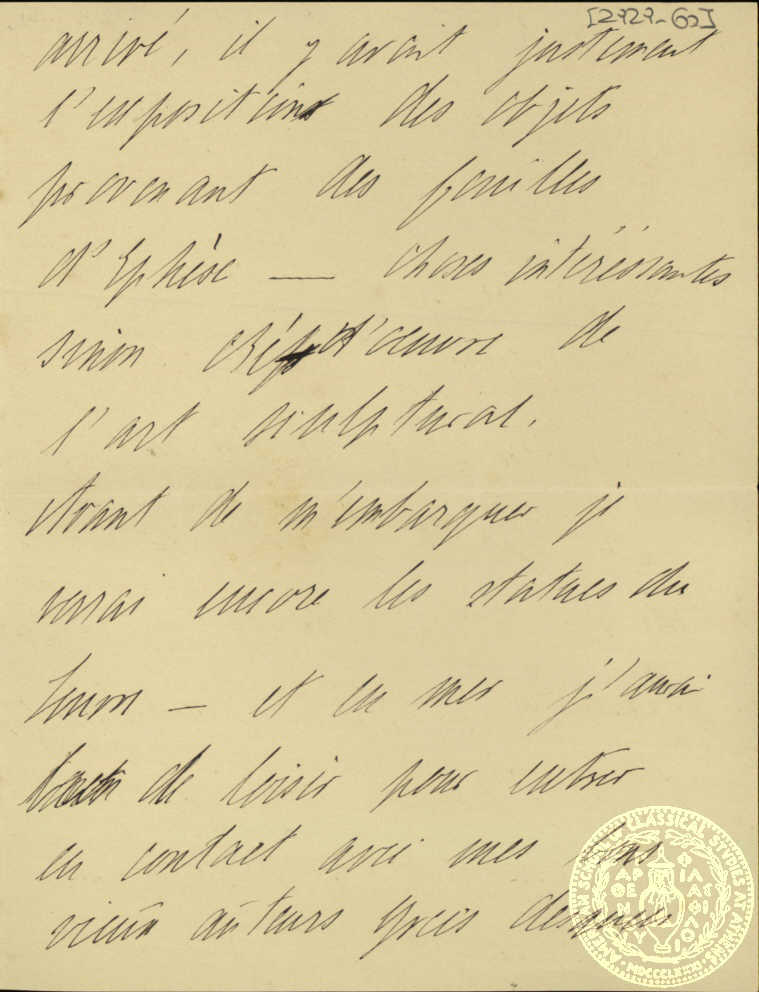 arrivé, il y avait justement
l'exposition des objets
provenant des fouilles
d'Ephèse — choses intéréssantes
sinon d'oeuvre de
l'art sculptural.
Avant de m'embarquer je
verrai encore les statues du
Louvre — et en mer j'aurai
de loisir pour entrer
en contact avec mes bons
vieux auteurs grecs desquels
AMERICAN SCHOOL OF CLASSICAL STUDIES AT ATHENS
MDCCCLXXXI